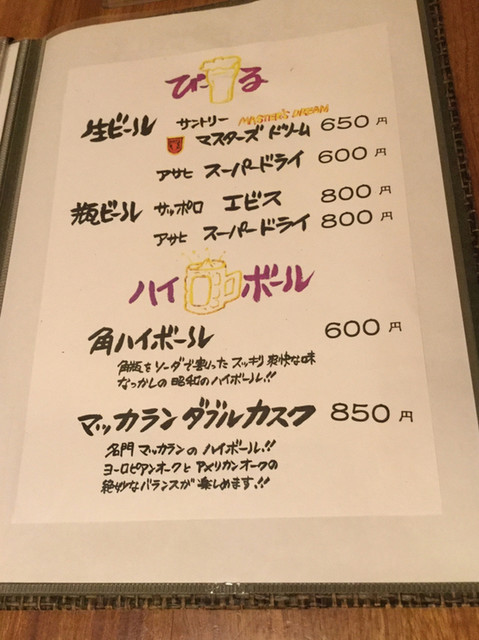 びーる
生ビール サントリー MASTER'S DREAM
マスターズ ドリーム 650円
アサヒ スーパードライ 600円
瓶ビール サッポロ エビス 800円
アサヒ スーパードライ 800円
ハイボール
角ハイボール 600円
角瓶をソーダで割ったスッキリ爽快な味
なつかしの昭和のハイボール!!
マッカランダブルカスク 850円
名門マッカランのハイボール!!
ヨーロピアンオークとアメリカンオークの
絶妙なバランスが楽しめます!!